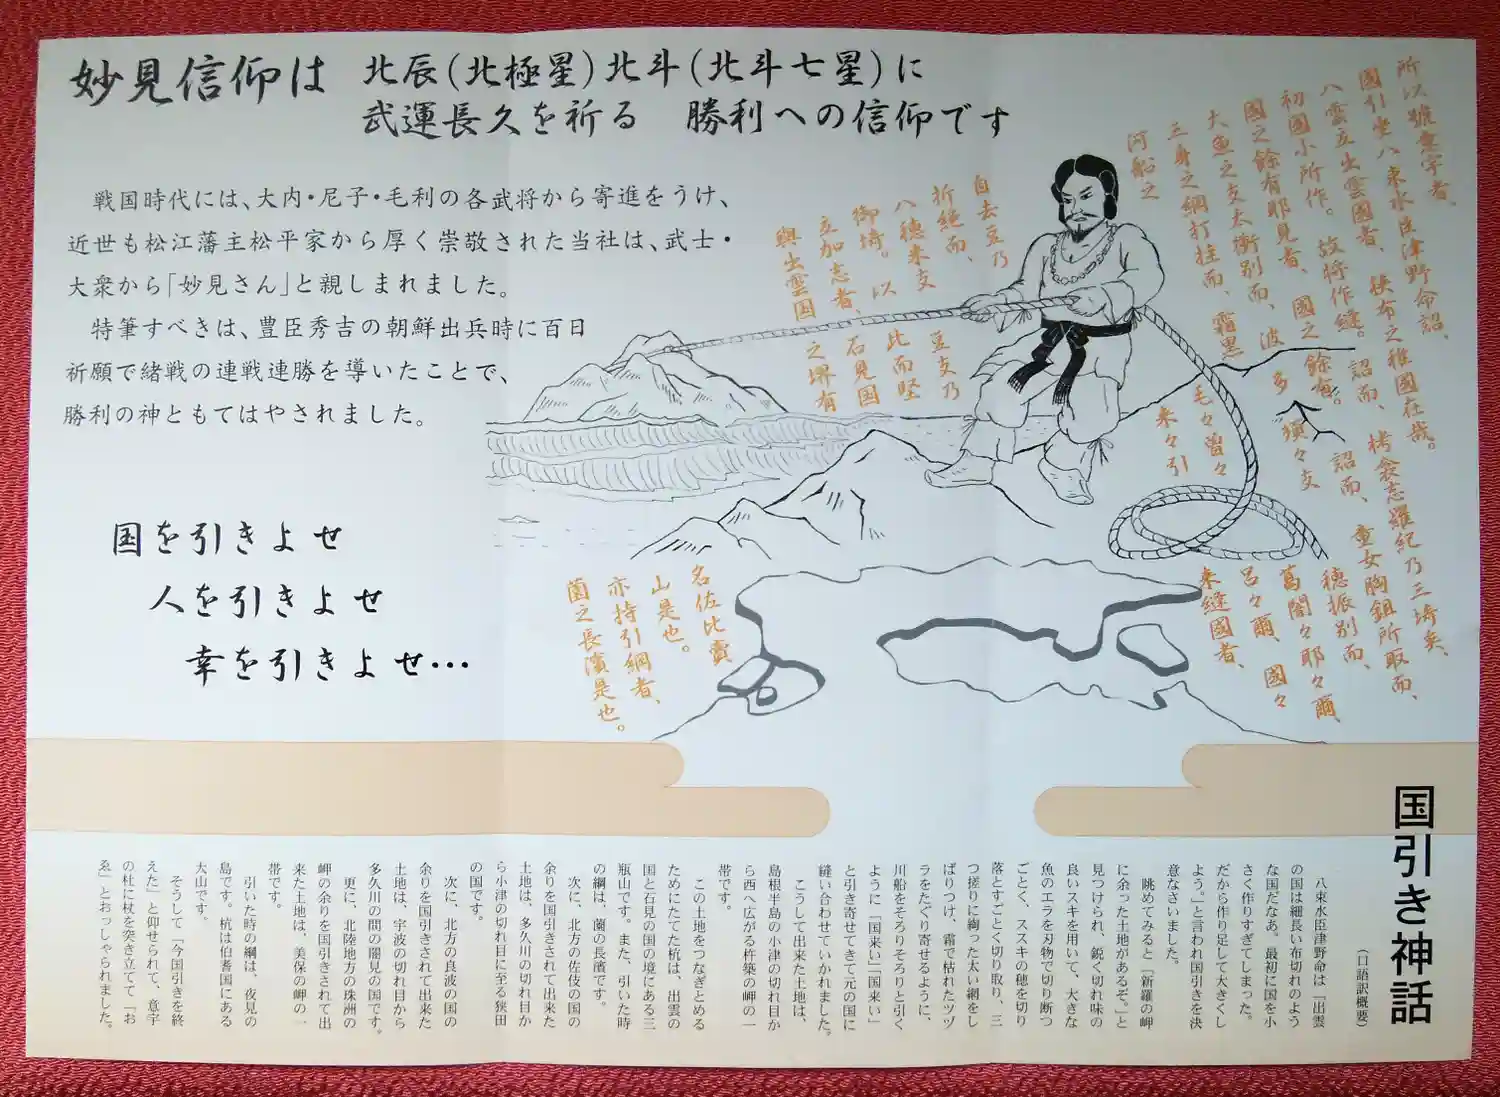 妙見信仰は
北辰(北極星)北斗(北斗七星)に
武運長久を祈る 勝利への信仰です
戦国時代には、大内・尼子・毛利の各武将から寄進をうけ、
近世も松江藩主松平家から厚く崇敬された当社は、武士・
大衆から「妙見さん」と親しまれました。
特筆すべきは、豊臣秀吉の朝鮮出兵時に百日
祈願で緒戦の連戦連勝を導いたことで、
勝利の神ともてはやされました。
国を引きよせ
人を引きよせ
幸を引きよせ…
所以號意宇者、
國引坐八束水臣津野命詔、
八雲立出雲國者、狭布之稚國在哉。
初國小所作。故将作縫。詔而、栲衾志羅紀乃三埼矣、
國之餘有耶見者、國之餘有。詔而、童女胸鉏所取而、
大魚之支太衝別而、波多須々支穂振別而、
三身之綱打挂而、霜黒葛闇々耶々爾、
河船之毛々曽々呂々爾、國々
来々引来縫國者、
自去豆乃
折絶而、
八穂米支豆支乃
御埼。以此而堅
立加志者、石見国
與出雲国之堺有
名佐比賣
山是也。
亦持引綱者、
薗之長濱是也。
国引き神話
(口語訳概要)
八束水臣津野命は「出雲
の国は細長い布切れのよう
な国だなあ。最初に国を小
さく作りすぎてしまった。
だから作り足して大きくし
よう。」と言われ国引きを決
意なさいました。
眺めてみると「新羅の岬
に余った土地があるぞ。」と
見つけられ、鋭く切れ味の
良いスキを用いて、大きな
魚のエラを刃物で切り断つ
ごとく、ススキの穂を切り
落とすごとく切り取り、三
つ搓りに綯った太い綱をし
ばりつけ、霜で枯れたツヅ
ラをたぐり寄せるように、
川船をそろりそろりと引く
ように「国来い」「国来い」
と引き寄せてきて元の国に
縫い合わせていかれました。
こうして出来た土地は、
島根半島の小津の切れ目か
ら西へ広がる杵築の岬の一
帯です。
この土地をつなぎとめる
ためにたてた杭は、出雲の
国と石見の国の境にある三
瓶山です。また、引いた時
の綱は、薗の長濱です。
次に、北方の佐伎の国の
余りを国引きされて出来た
土地は、多久川の切れ目か
ら小津の切れ目に至る狭田
の国です。
次に、北方の良波の国の
余りを国引きされて出来た
土地は、宇波の切れ目から
多久川の間の闇見の国です。
更に、北陸地方の珠洲の
岬の余りを国引きされて出
来た土地は、美保の岬の一
帯です。
引いた時の綱は、夜見の
島です。杭は伯耆国にある
大山です。
そうして「今国引きを終
えた」と仰せられて、意宇
の杜に杖を突き立てて「お
ゑ」とおっしゃられました。